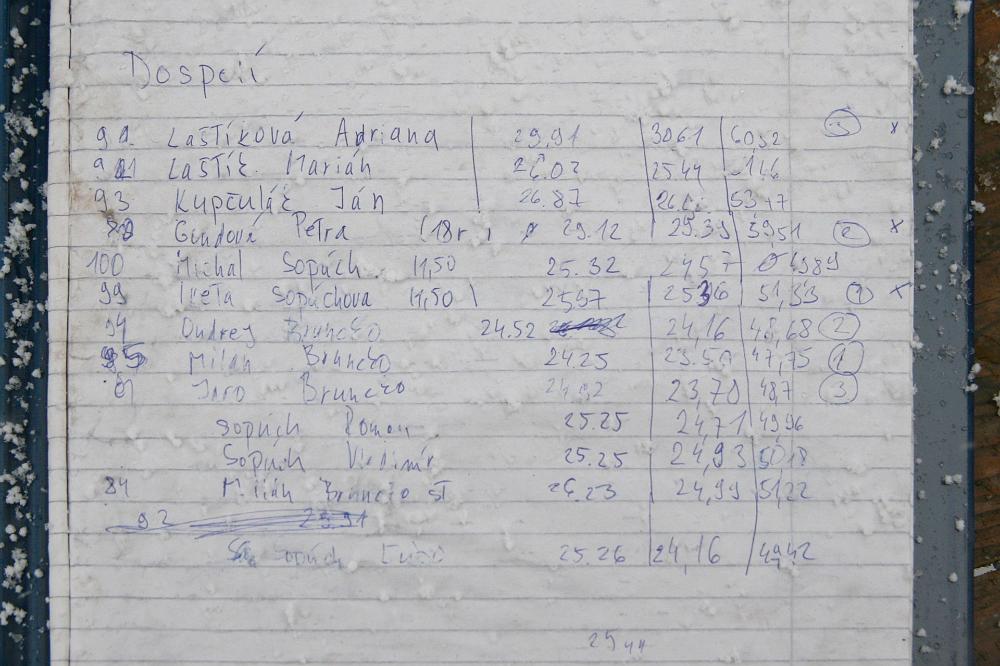 Dospelí
Laštíková Adriana 29,91 30.61 60,52 3 x
Laštík Marián 26,02 25,44
93 Kupčulák Ján 26.87
Petra (18r.) 29.12 29.39 2 x
100 Michal Sopúch 11,50 25.32 24,57 4989
99 Iveta Sopúchova 11,50 2597 51,33 1 x
94 Ondrej Brunčko 24.52 24,16 48,68 2
95 Milan Brunčko 24.25 23.50 47,75 1
Jaro Brunčko 23,70 48,7 3
Sopúch Roman 25.25 24,71 49,96
Sopúch Vladimír 25.25 24,93 50,18
84 Milan Brunčko st 26.23 24,99 51,22
92
Sopúch 25.26 24,16 49,42